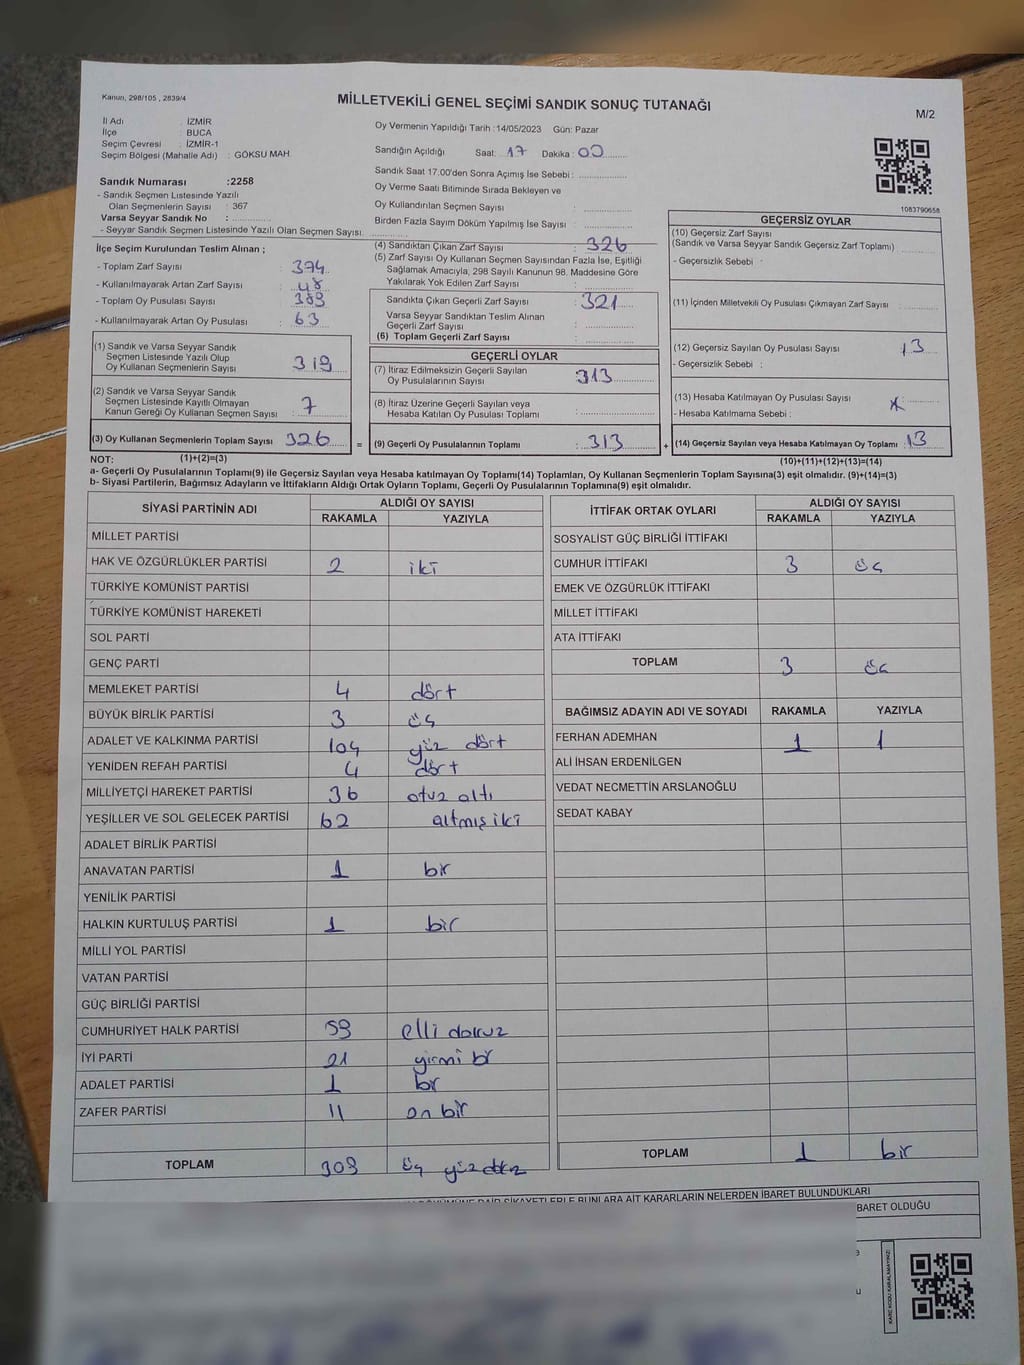 Kanun, 298/105 , 2839/4
MİLLETVEKİLİ GENEL SEÇİMİ SANDIK SONUÇ TUTANAĞI
M/2
İl Adı : İZMİR
İlçe : BUCA
Seçim Çevresi : İZMİR-1
Seçim Bölgesi (Mahalle Adı) : GÖKSU MAH.
Oy Vermenin Yapıldığı Tarih :14/05/2023 Gün: Pazar
Sandığın Açıldığı Saat: 17 Dakika : 00
Sandık Saat 17.00'den Sonra Açımış İse Sebebi :
Oy Verme Saati Bitiminde Sırada Bekleyen ve
Oy Kullandırılan Seçmen Sayısı :
Birden Fazla Sayım Döküm Yapılmış İse Sayısı :
1083790658
Sandık Numarası :2258
- Sandık Seçmen Listesinde Yazılı
Olan Seçmenlerin Sayısı : 367
Varsa Seyyar Sandık No :
- Seyyar Sandık Seçmen Listesinde Yazılı Olan Seçmen Sayısı:
İlçe Seçim Kurulundan Teslim Alınan ;
- Toplam Zarf Sayısı : 374
- Kullanılmayarak Artan Zarf Sayısı : 48
- Toplam Oy Pusulası Sayısı : 389
- Kullanılmayarak Artan Oy Pusulası : 63
(1) Sandık ve Varsa Seyyar Sandık
Seçmen Listesinde Yazılı Olup
Oy Kullanan Seçmenlerin Sayısı : 319
(2) Sandık ve Varsa Seyyar Sandık
Seçmen Listesinde Kayıtlı Olmayan
Kanun Gereği Oy Kullanan Seçmen Sayısı : 7
(3) Oy Kullanan Seçmenlerin Toplam Sayısı : 326
(4) Sandıktan Çıkan Zarf Sayısı : 326
(5) Zarf Sayısı Oy Kullanan Seçmen Sayısından Fazla İse, Eşitliği
Sağlamak Amacıyla, 298 Sayılı Kanunun 98. Maddesine Göre
Yakılarak Yok Edilen Zarf Sayısı :
Sandıkta Çıkan Geçerli Zarf Sayısı : 321
Varsa Seyyar Sandıktan Teslim Alınan
Geçerli Zarf Sayısı :
(6) Toplam Geçerli Zarf Sayısı :
GEÇERLİ OYLAR
(7) İtiraz Edilmeksizin Geçerli Sayılan
Oy Pusulalarının Sayısı : 313
(8) İtiraz Üzerine Geçerli Sayılan veya
Hesaba Katılan Oy Pusulası Toplamı :
= (9) Geçerli Oy Pusulalarının Toplamı : 313 +
GEÇERSİZ OYLAR
(10) Geçersiz Zarf Sayısı
(Sandık ve Varsa Seyyar Sandık Geçersiz Zarf Toplamı) :
- Geçersizlik Sebebi :
(11) İçinden Milletvekili Oy Pusulası Çıkmayan Zarf Sayısı :
(12) Geçersiz Sayılan Oy Pusulası Sayısı : 13
- Geçersizlik Sebebi :
(13) Hesaba Katılmayan Oy Pusulası Sayısı :
- Hesaba Katılmama Sebebi :
(14) Geçersiz Sayılan veya Hesaba Katılmayan Oy Toplamı : 13
NOT: (1)+(2)=(3)
(10)+(11)+(12)+(13)=(14)
a- Geçerli Oy Pusulalarının Toplamı(9) ile Geçersiz Sayılan veya Hesaba katılmayan Oy Toplamı(14) Toplamları, Oy Kullanan Seçmenlerin Toplam Sayısına(3) eşit olmalıdır. (9)+(14)=(3)
b- Siyasi Partilerin, Bağımsız Adayların ve İttifakların Aldığı Ortak Oyların Toplamı, Geçerli Oy Pusulalarının Toplamına(9) eşit olmalıdır.
SİYASİ PARTİNİN ADI ALDIĞI OY SAYISI
RAKAMLA YAZIYLA
MİLLET PARTİSİ
HAK VE ÖZGÜRLÜKLER PARTİSİ 2 iki
TÜRKİYE KOMÜNİST PARTİSİ
TÜRKİYE KOMÜNİST HAREKETİ
SOL PARTİ
GENÇ PARTİ
MEMLEKET PARTİSİ 4 dört
BÜYÜK BİRLİK PARTİSİ 3 üç
ADALET VE KALKINMA PARTİSİ 104 yüz dört
YENİDEN REFAH PARTİSİ 4 dört
MİLLİYETÇİ HAREKET PARTİSİ 36 otuz altı
YEŞİLLER VE SOL GELECEK PARTİSİ 62 altmış iki
ADALET BİRLİK PARTİSİ
ANAVATAN PARTİSİ 1 bir
YENİLİK PARTİSİ
HALKIN KURTULUŞ PARTİSİ 1 bir
MİLLİ YOL PARTİSİ
VATAN PARTİSİ
GÜÇ BİRLİĞİ PARTİSİ
CUMHURİYET HALK PARTİSİ 59 elli dokuz
İYİ PARTİ 21 yirmi bir
ADALET PARTİSİ 1 bir
ZAFER PARTİSİ 11 on bir
TOPLAM 309 üç yüz
İTTİFAK ORTAK OYLARI ALDIĞI OY SAYISI
RAKAMLA YAZIYLA
SOSYALİST GÜÇ BİRLİĞİ İTTİFAKI
CUMHUR İTTİFAKI 3 üç
EMEK VE ÖZGÜRLÜK İTTİFAKI
MİLLET İTTİFAKI
ATA İTTİFAKI
TOPLAM 3 üç
BAĞIMSIZ ADAYIN ADI VE SOYADI RAKAMLA YAZIYLA
FERHAN ADEMHAN 1 1
ALİ İHSAN ERDENİLGEN
VEDAT NECMETTİN ARSLANOĞLU
SEDAT KABAY
TOPLAM 1 bir
ŞİKAYETLERLE BUNLARA AİT KARARLARIN NELERDEN İBARET BULUNDUKLARI
BARET OLDUĞU